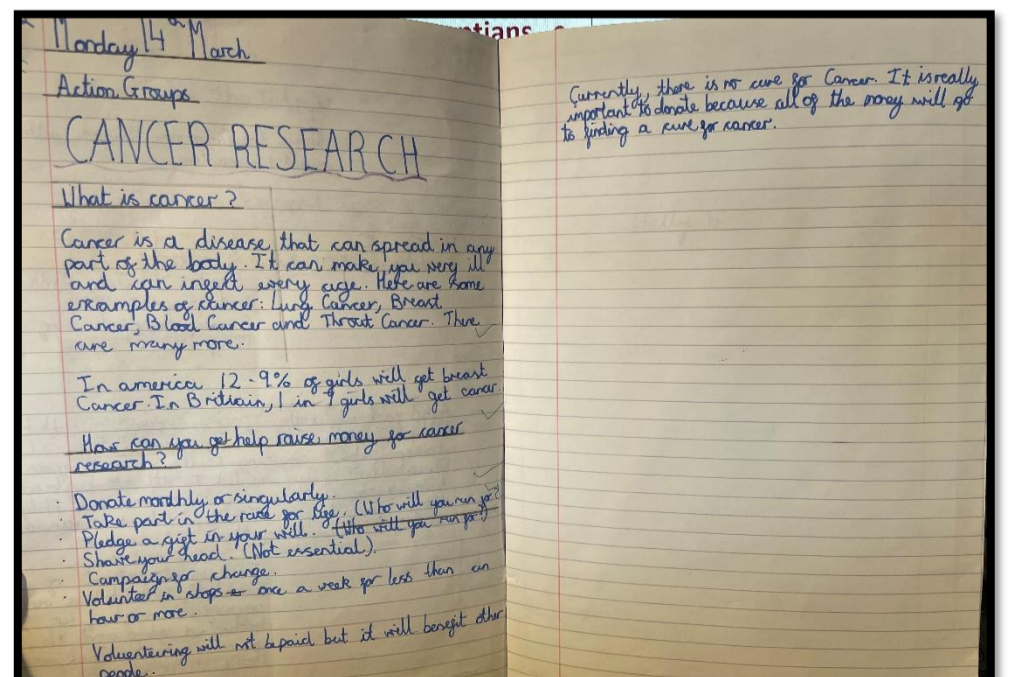 Monday 14th March
Action Groups
CANCER RESEARCH
What is cancer?
Cancer is a disease that can spread in any
part of the body. It can make you very ill
and can infect every age. Here are some
excamples of cancer: Lung Cancer, Breast
Cancer, Blood Cancer and Throat Cancer. There
are many more.
In america 12.9% of girls will get breast
Cancer. In Britiain, 1 in 7 girls will get cancer
How can you get help raise money for cancer
research?
· Donate monthly or singularly.
· Take part in the race for life. (Who will you run for?)
· Pledge a gift in your will. (Who will you run for?)
· Shave your head. (Not essential).
· Campaign for change.
· Volunteer in shops or once a week for less than an
hour or more.
Voluenteering will not be paid but it will benefit other
people.
Currently, there is no cure for Cancer. It is really
important to donate because all of the money will go
to finding a cure for cancer.